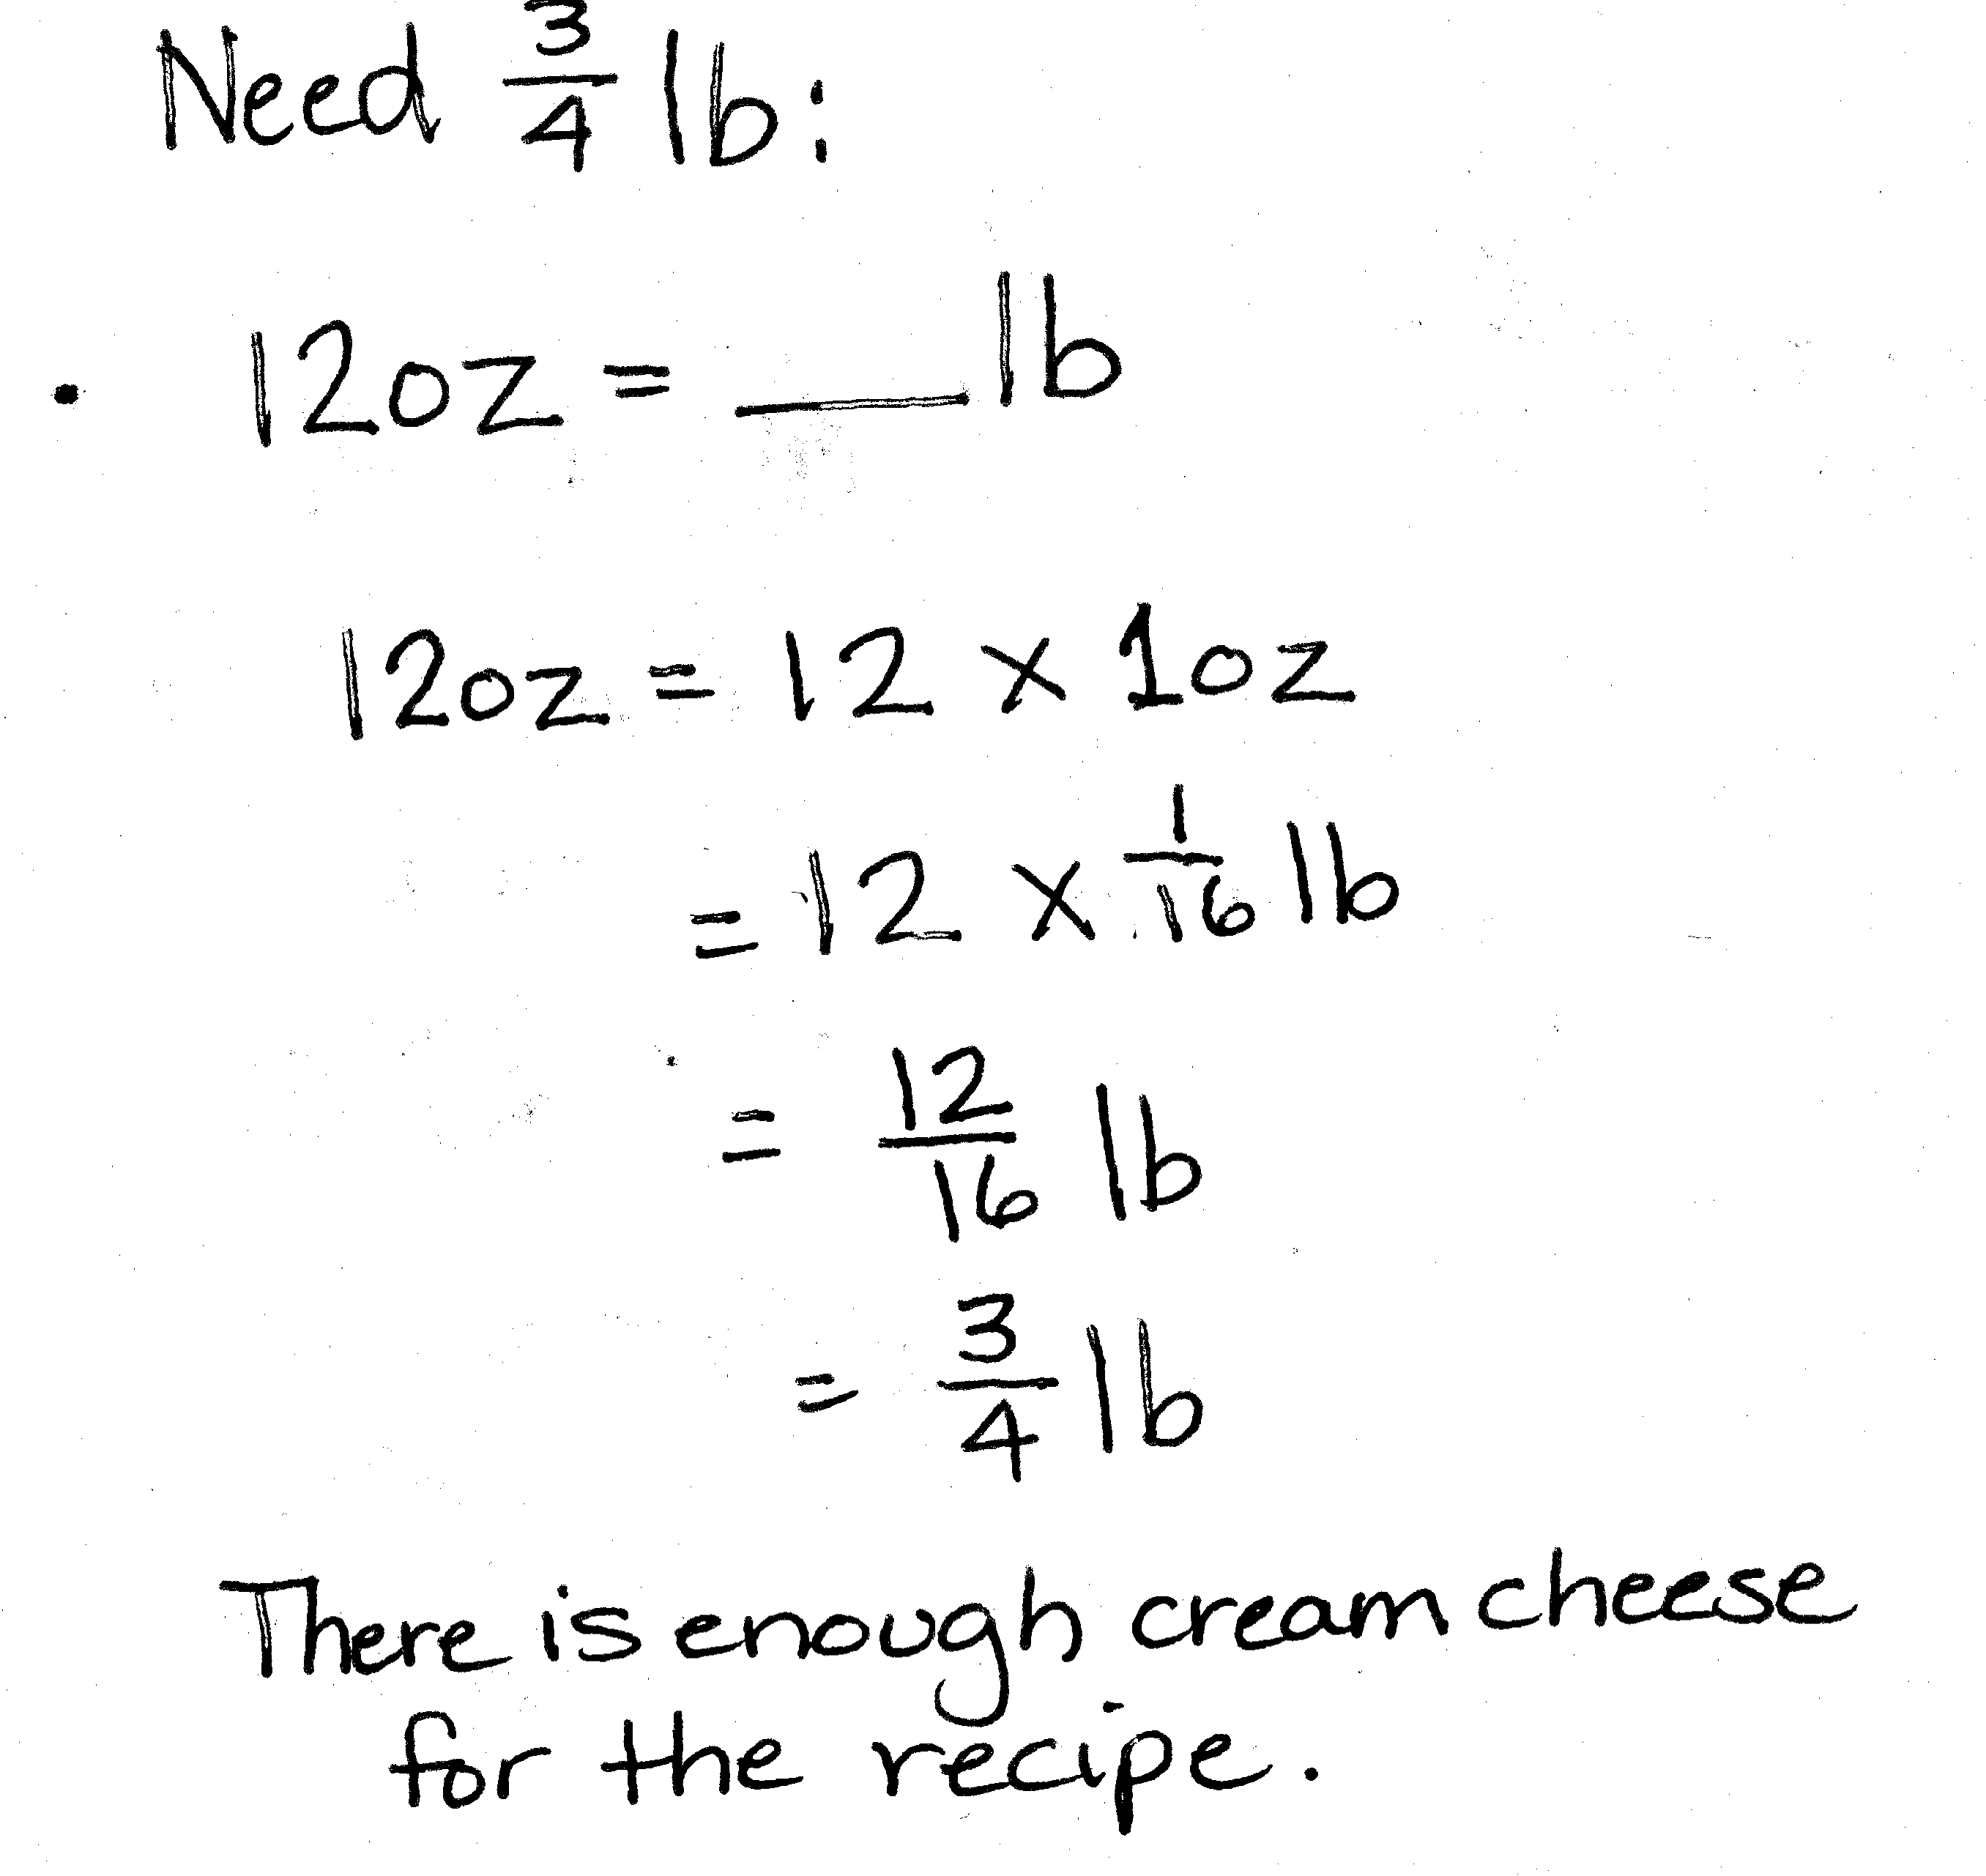 Need 3/4 lb:
• 12oz = ___ lb
12oz = 12 x 1oz
= 12 x 1/16 lb
= 12/16 lb
= 3/4 lb
There is enough cream cheese
for the recipe.